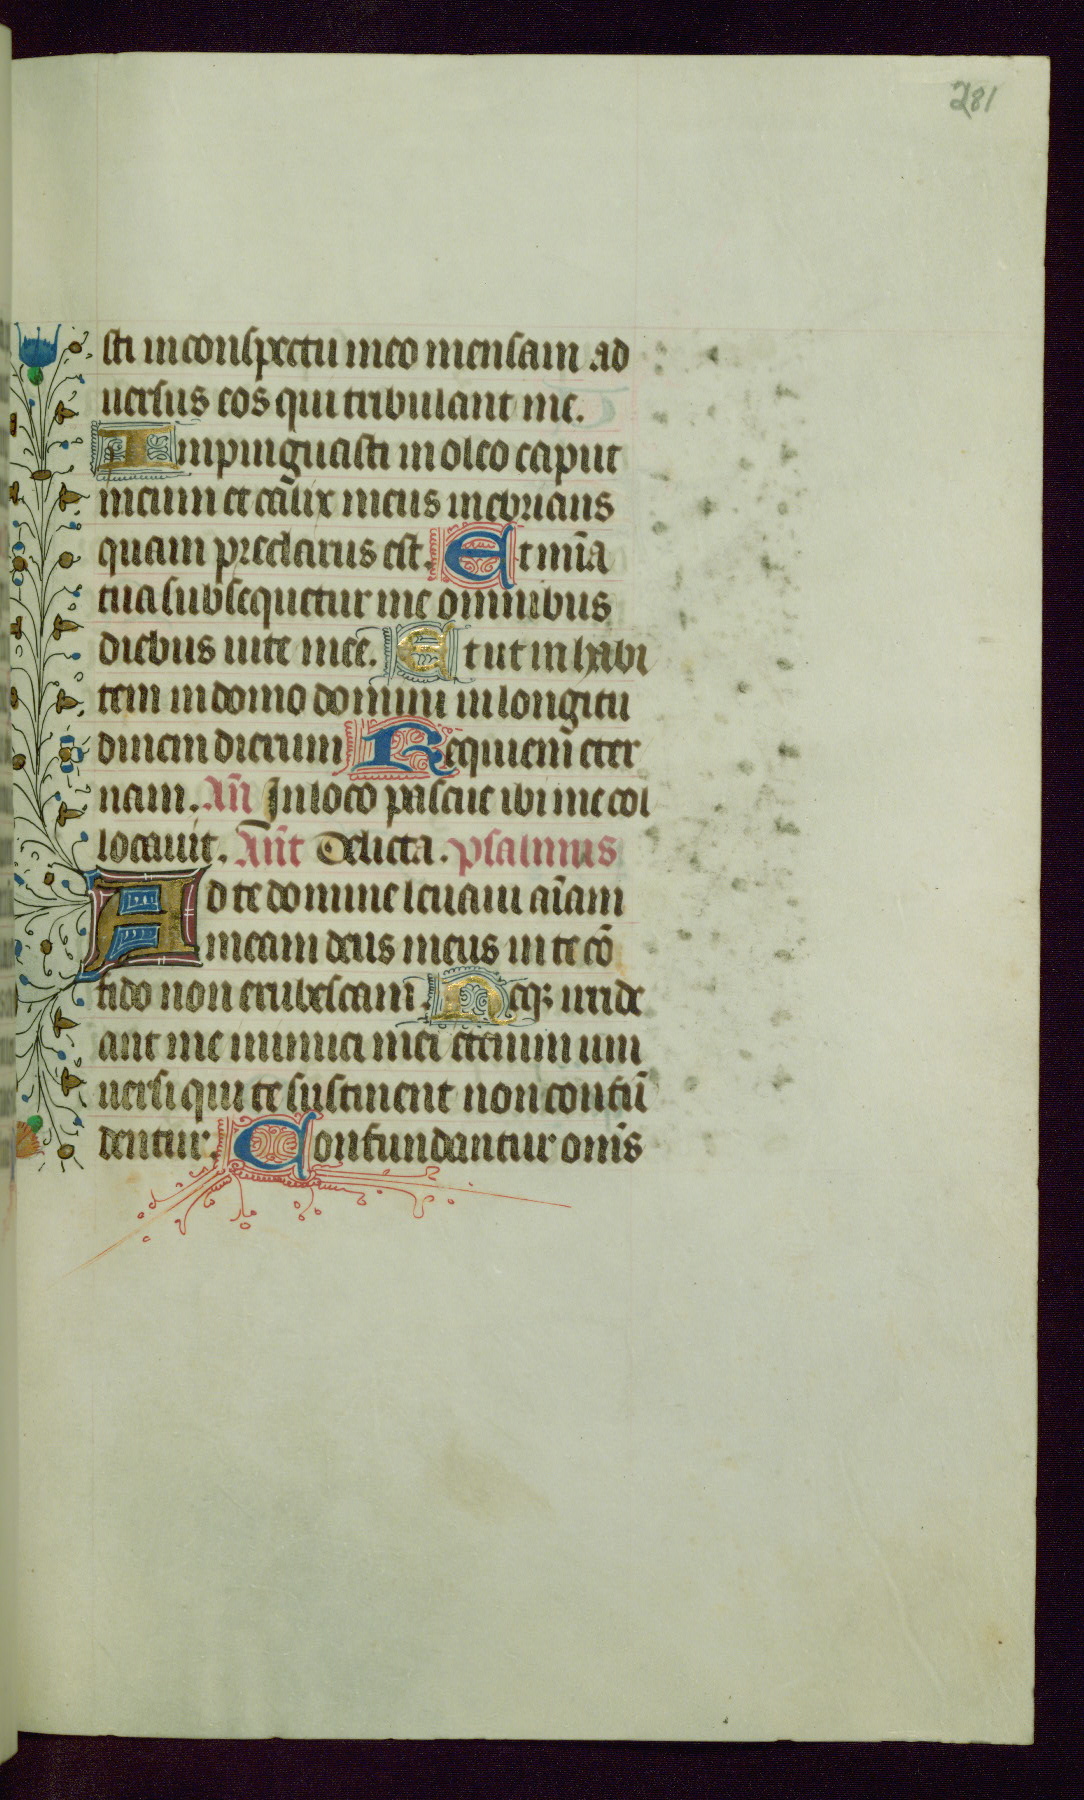 281
sti in conspectu meo mensam ad
uersus eos qui tribulant me.
Inpinguasti in oleo caput
meum et calix meus inebrians
quam preclarus est. Et mīa
tua subsequetur me omnibus
diebus uite mee. Et ut inhabi
tem in domo domini in longitu
dinem dierum Requiem eter
nam. Añ In loco pascue ibi me col
locauit. Añt Delicta. psalmus
Ad te domine leuaui aīam
meam deus meus in te cō
fido non erubescam. Neqꝫ irride
ant me inimici mei etenim uni
uersi qui te sustinent non confū
dentur. Confundantur om̄s